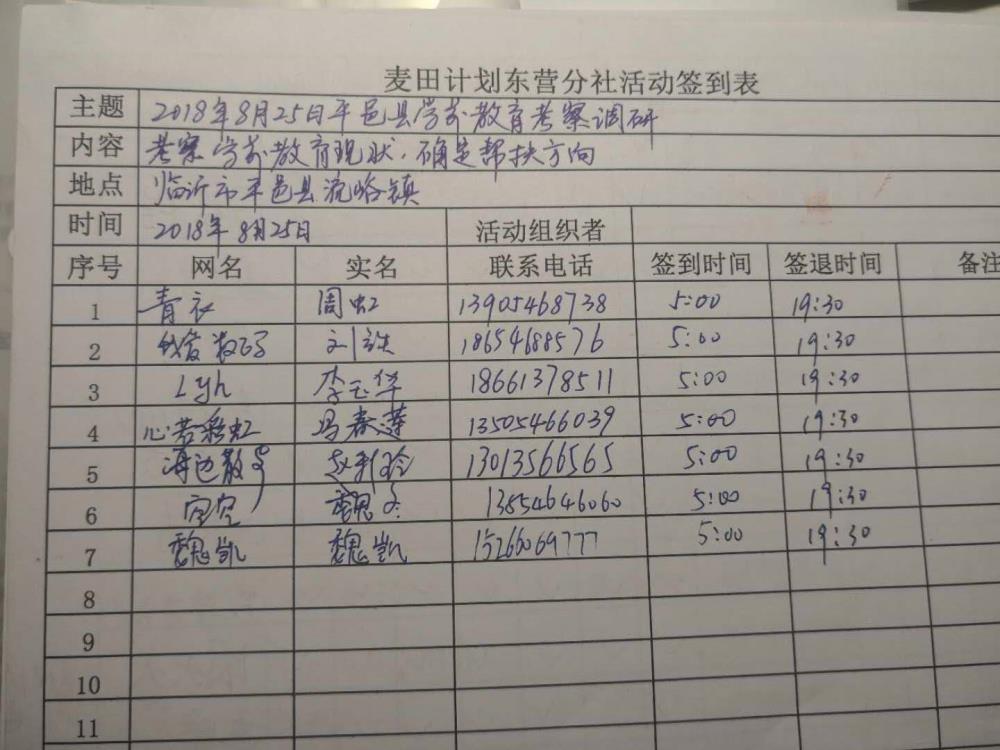 麦田计划东营分社活动签到表
主题 2018年8月25日平邑县学前教育考察调研
内容 考察学前教育现状,确定帮扶方向
地点 临沂市平邑县流峪镇
时间 2018年8月25日 活动组织者
序号 网名 实名 联系电话 签到时间 签退时间 备注
1 青衣 周虹 13905468738 5:00 19:30
2 数码 刘 18654688576 5:00 19:30
3 Lyh 李玉华 18661378511 5:00 19:30
4 心若彩虹 马春莲 13505466039 5:00 19:30
5 海边散步 赵利玲 13013566565 5:00 19:30
6 魏 13854646060 5:00 19:30
7 魏凯 魏凯 15266069777 5:00 19:30
8
9
10
11